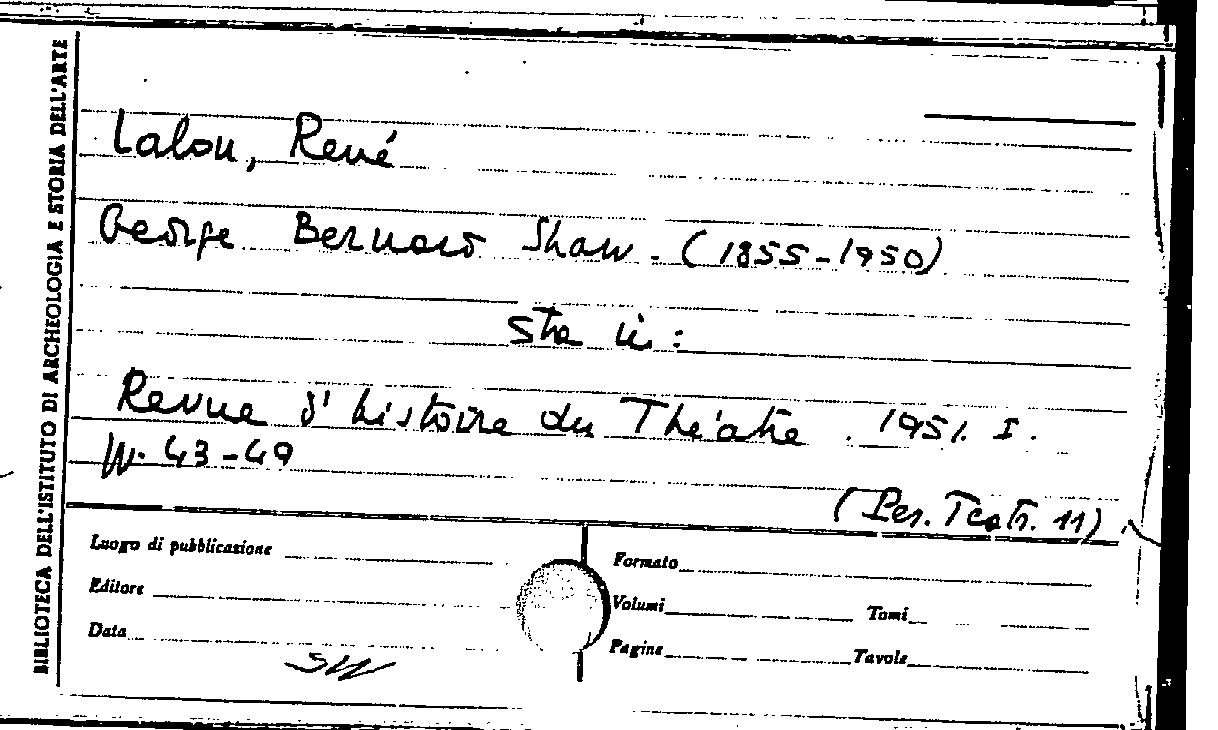 BIBLIOTECA DELL'ISTITUTO DI ARCHEOLOGIA E STORIA DELL'ARTE
Lalou, René
George Bernard Shaw. (1855-1950)
Sta in:
Revue d'histoire du Théatre. 1951. I.
pp. 43-49
(Per. Teatr. 11)
Luogo di pubblicazione
Editore
Data
SW
Formato
Volumi Tomi
Pagine Tavole